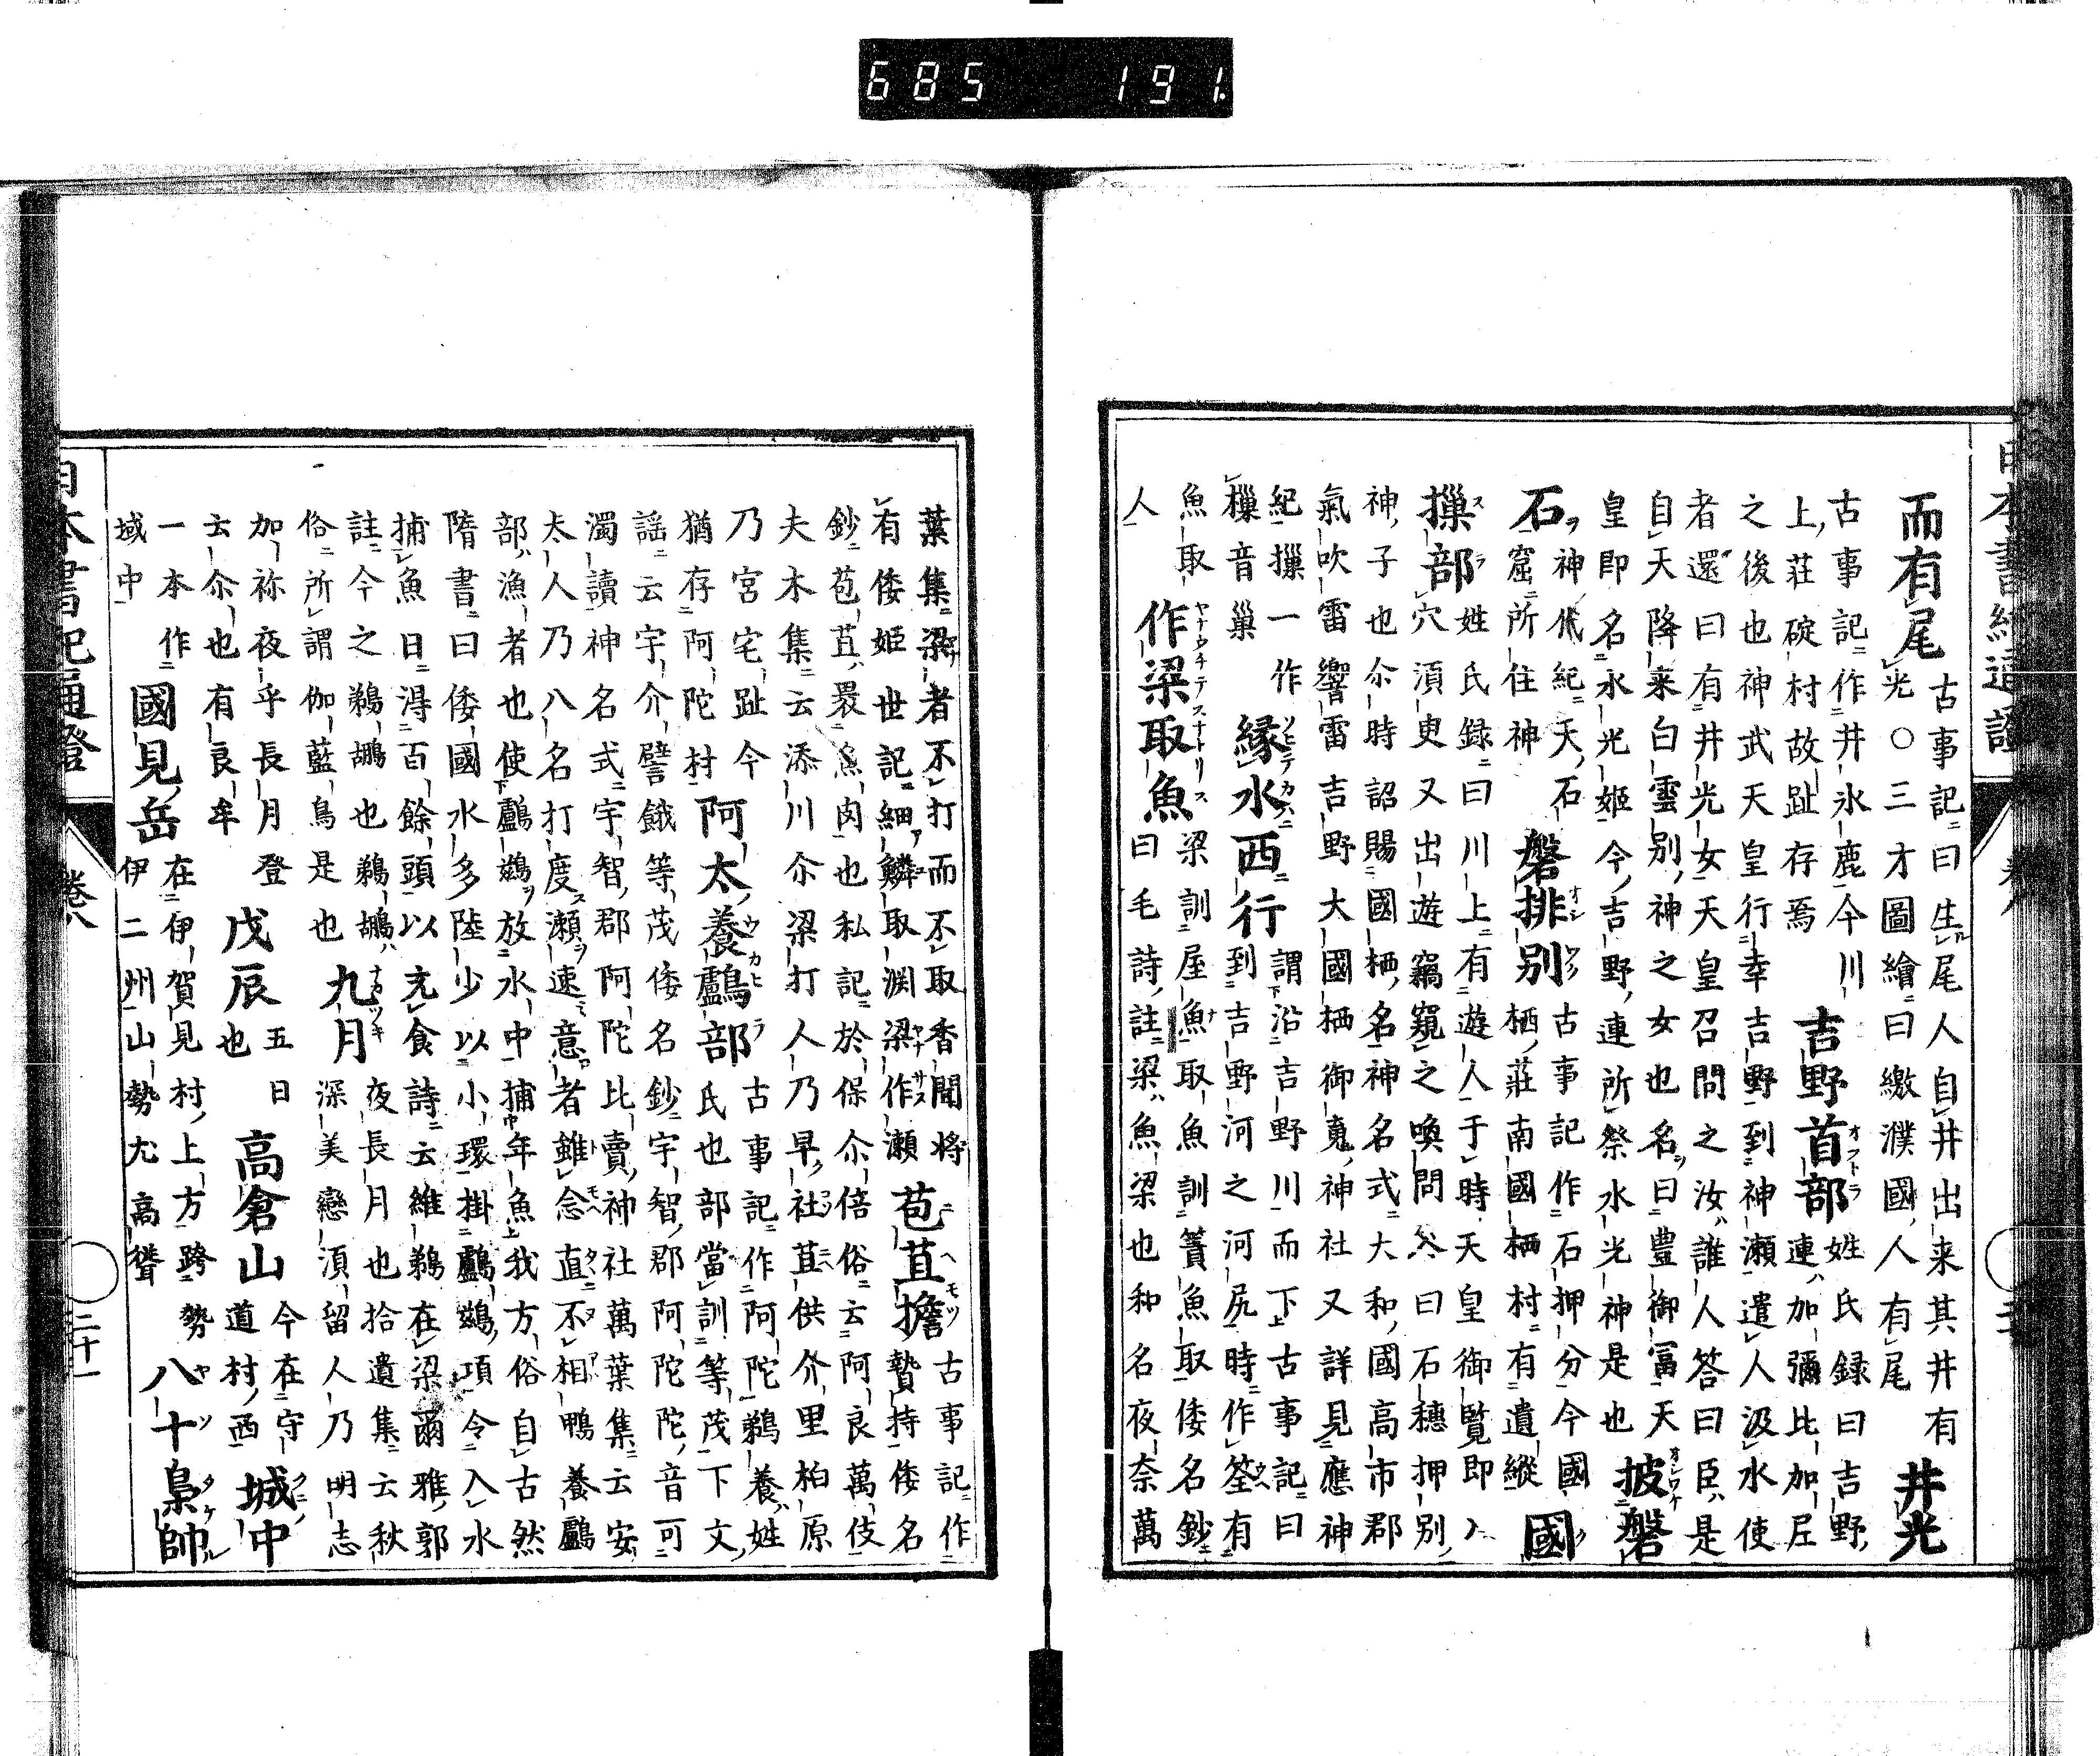 日本書紀通證
而有尾
古事記曰生尾人自井出来其井有
光〇三才圖繪曰繳濮國人有尾
井光
古事記作井氷鹿今川
上莊碇村故趾存焉
吉野首部
姓氏録曰吉野
連加彌比加尼
之後也神武天皇行幸吉野到神瀬遣人汲水使
者還曰有井光女天皇召問之汝誰人答曰臣是
自天降来白雲別神之女也名曰豊御富天
皇即名水光姫今吉野連所祭水光神是也
披磐
石
神代紀天石
窟所住神
磐排別
古事記作石押分今國
栖莊南國栖村有遺縱
國
樔部
姓氏録曰川上有遊人于時天皇御覧即入
穴須更又出遊竊窺之喚問答曰石穗押別
神子也尒時詔賜國栖名神名式大和國高市郡
氣吹雷響雷吉野大國栖御魂神社又詳見應神
紀樔一作
樔音巢
縁水西行
謂沿吉野川而下古事記曰
到吉野河之河尻時作筌有
魚取
人
作梁取魚
梁訓屋魚取魚訓簀魚取倭名鈔
曰毛詩註梁魚梁也和名夜奈萬
葉集梁者不打而不取香聞将
有倭姫世記細鱗取渕梁作瀬
苞苴擔
古事記作
贄持倭名
鈔苞苴褁魚肉也私記於保尒倍俗云阿良萬伎
夫木集云添川尒梁打人乃早社苴供介里柏原
乃宮宅趾今
猶存阿陀村
阿太養鸕部
古事記作阿陀鵜養姓
氏也部當訓等茂下文
謡云宇介譬餓等茂倭名鈔宇智郡阿陀音可
濁讀神名式宇智郡阿陀比賣神社萬葉集云安
太人乃八名打度瀬速意者雖念直不相鴨養鸕
部漁者也使鸕鷀放水中捕年魚我方俗自古然
隋書曰倭國水多陸少以小環掛鸕鷀項令入水
捕魚日得百餘頭以充食詩云維鵜在梁爾雅郭
註今之鵜鶘也鵜鶘
俗所謂伽藍鳥是也
九月
夜長月也拾遺集云秋
深美戀須留人乃明志
加祢夜乎長月登
云尒也有良牟
戊辰
五日
也
高倉山
今在守
道村西
城中
一本作
域中
國見岳
在伊賀見村上方跨勢
伊二州山勢尤高聳
八十梟帥
日本書紀通證
卷八
二十一
685 191